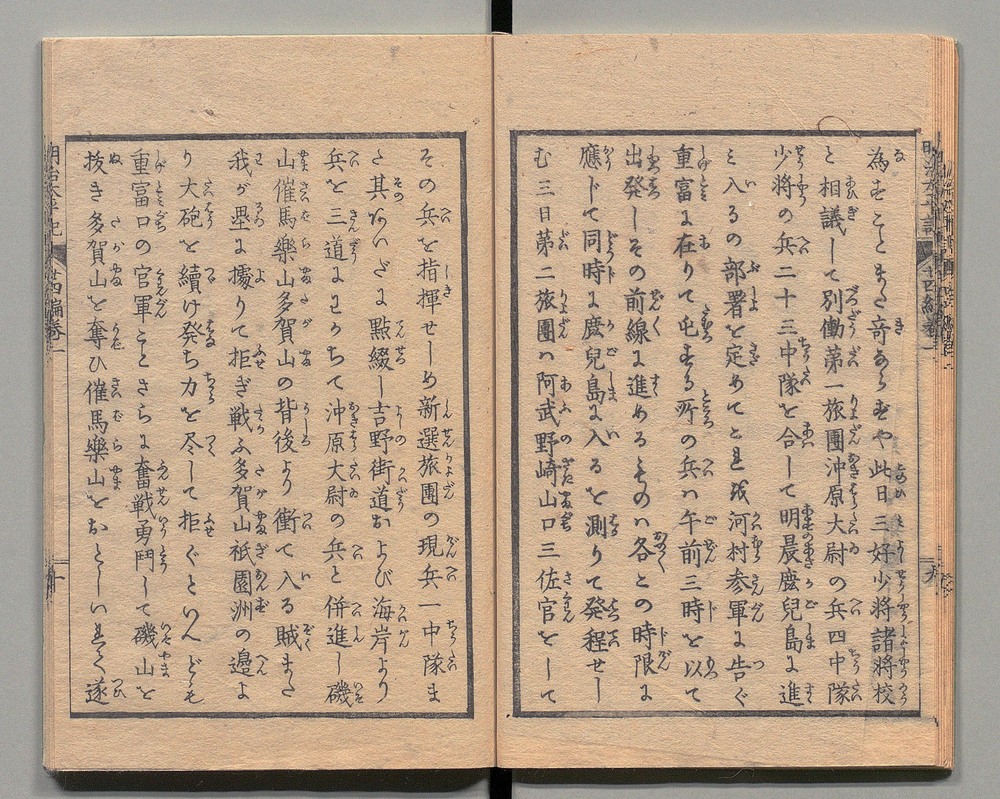 為すことまた奇ならずや此日三好少将諸将校
と相議して別働第一旅團沖原大尉の兵四中隊
少将の兵二十三中隊を合して明晨麑児島に進
ミ入るの部署を定めてこれを河村参軍に告ぐ
重富に在りて屯する所の兵ハ午前三時を以て
出発しその前線に進めるものハ各との時限に
應トて同時に麑児島に入るを測りて発程せし
む三日第二旅團ハ阿武野崎山口三佐官をして
その兵を指揮せしめ新選旅團の現兵一中隊ま
た其あいだに點綴し吉野街道および海岸より
兵を三道にわかちて沖原大尉の兵と併進し磯
山催馬樂山多賀山の背後より衝て入る賊また
我が塁に據りて拒ぎ戦ふ多賀山祇園洲の邊よ
り大砲を續け発ち力を尽して拒ぐといへども
重富口の官軍ことさらに奮戦勇鬥して磯山を
抜き多賀山を奪ひ催馬樂山をおとしいれて遂
明治太平記
廿四編巻一
十